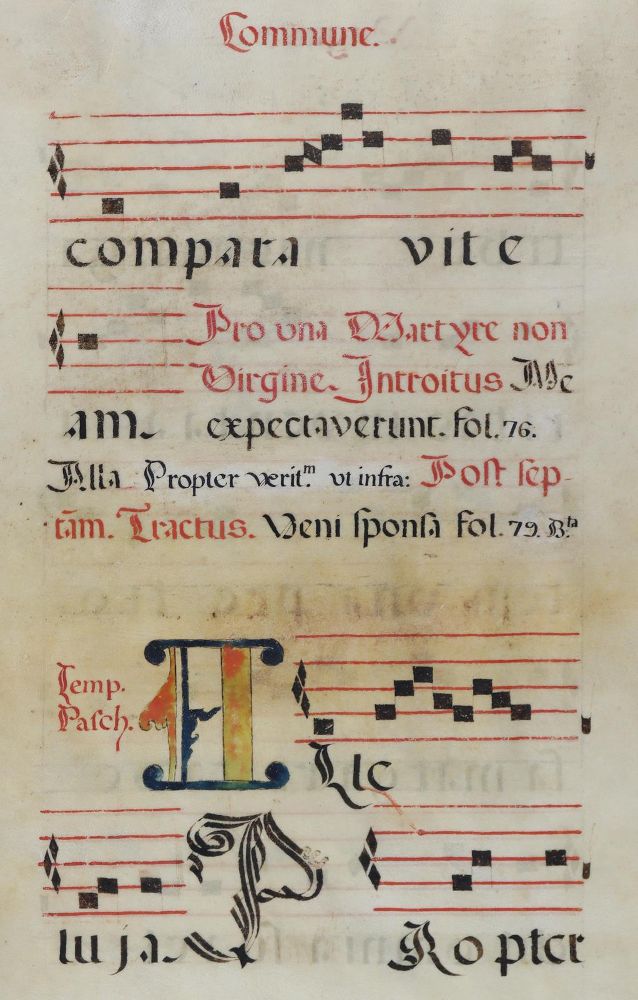 Commune.
compara vite
Pro una Martyre non
Virgine. Introitus Me
am. expectaverunt. fol. 76.
Alla Propter verit.m ut infra: Post sep-
tãm. Tractus. Veni sponsa fol. 79. B.ta
Temp.
Pasch.
A Lle
luja. P Ropter